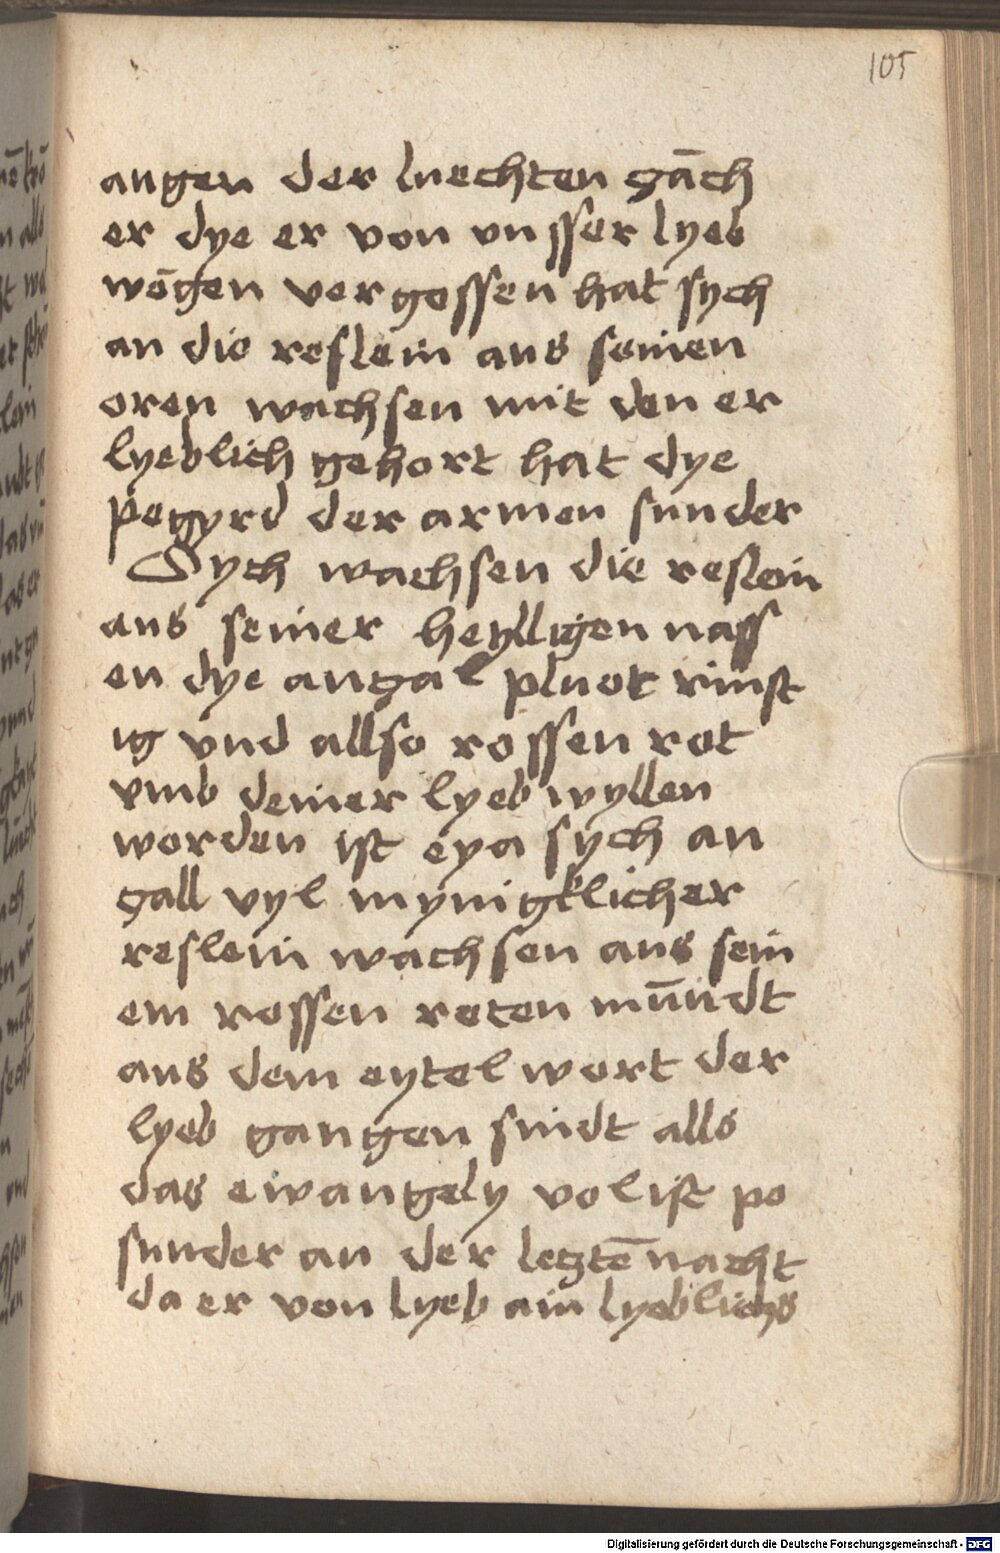 105
augen der luechten zāch
er dye er von vnsser lyeb
wo᷑gen vergossen hat sych
an die reslein aus seinen
oren wachsen mit den er
lyeblich gehort hat dye
pegyrd der armen sunder
Sych wachsen die reslein
aus seiner heylligen nass
en dye anzal pluot rinst
ig vnd allso rossen rot
vmb deiner lyeb wyllen
worden ist eya sych an
zall vyl mynigklicher
reslein wachsen aus sein
em rossen roten mūndt
aus dem eytel wort der
lyeb gangen sindt alls
das ewangely vol ist po
sunder an der letztē nacht
da er von lyeb ain lyeblichs
Digitalisierung gefördert durch die Deutsche Forschungsgemeinschaft - DFG